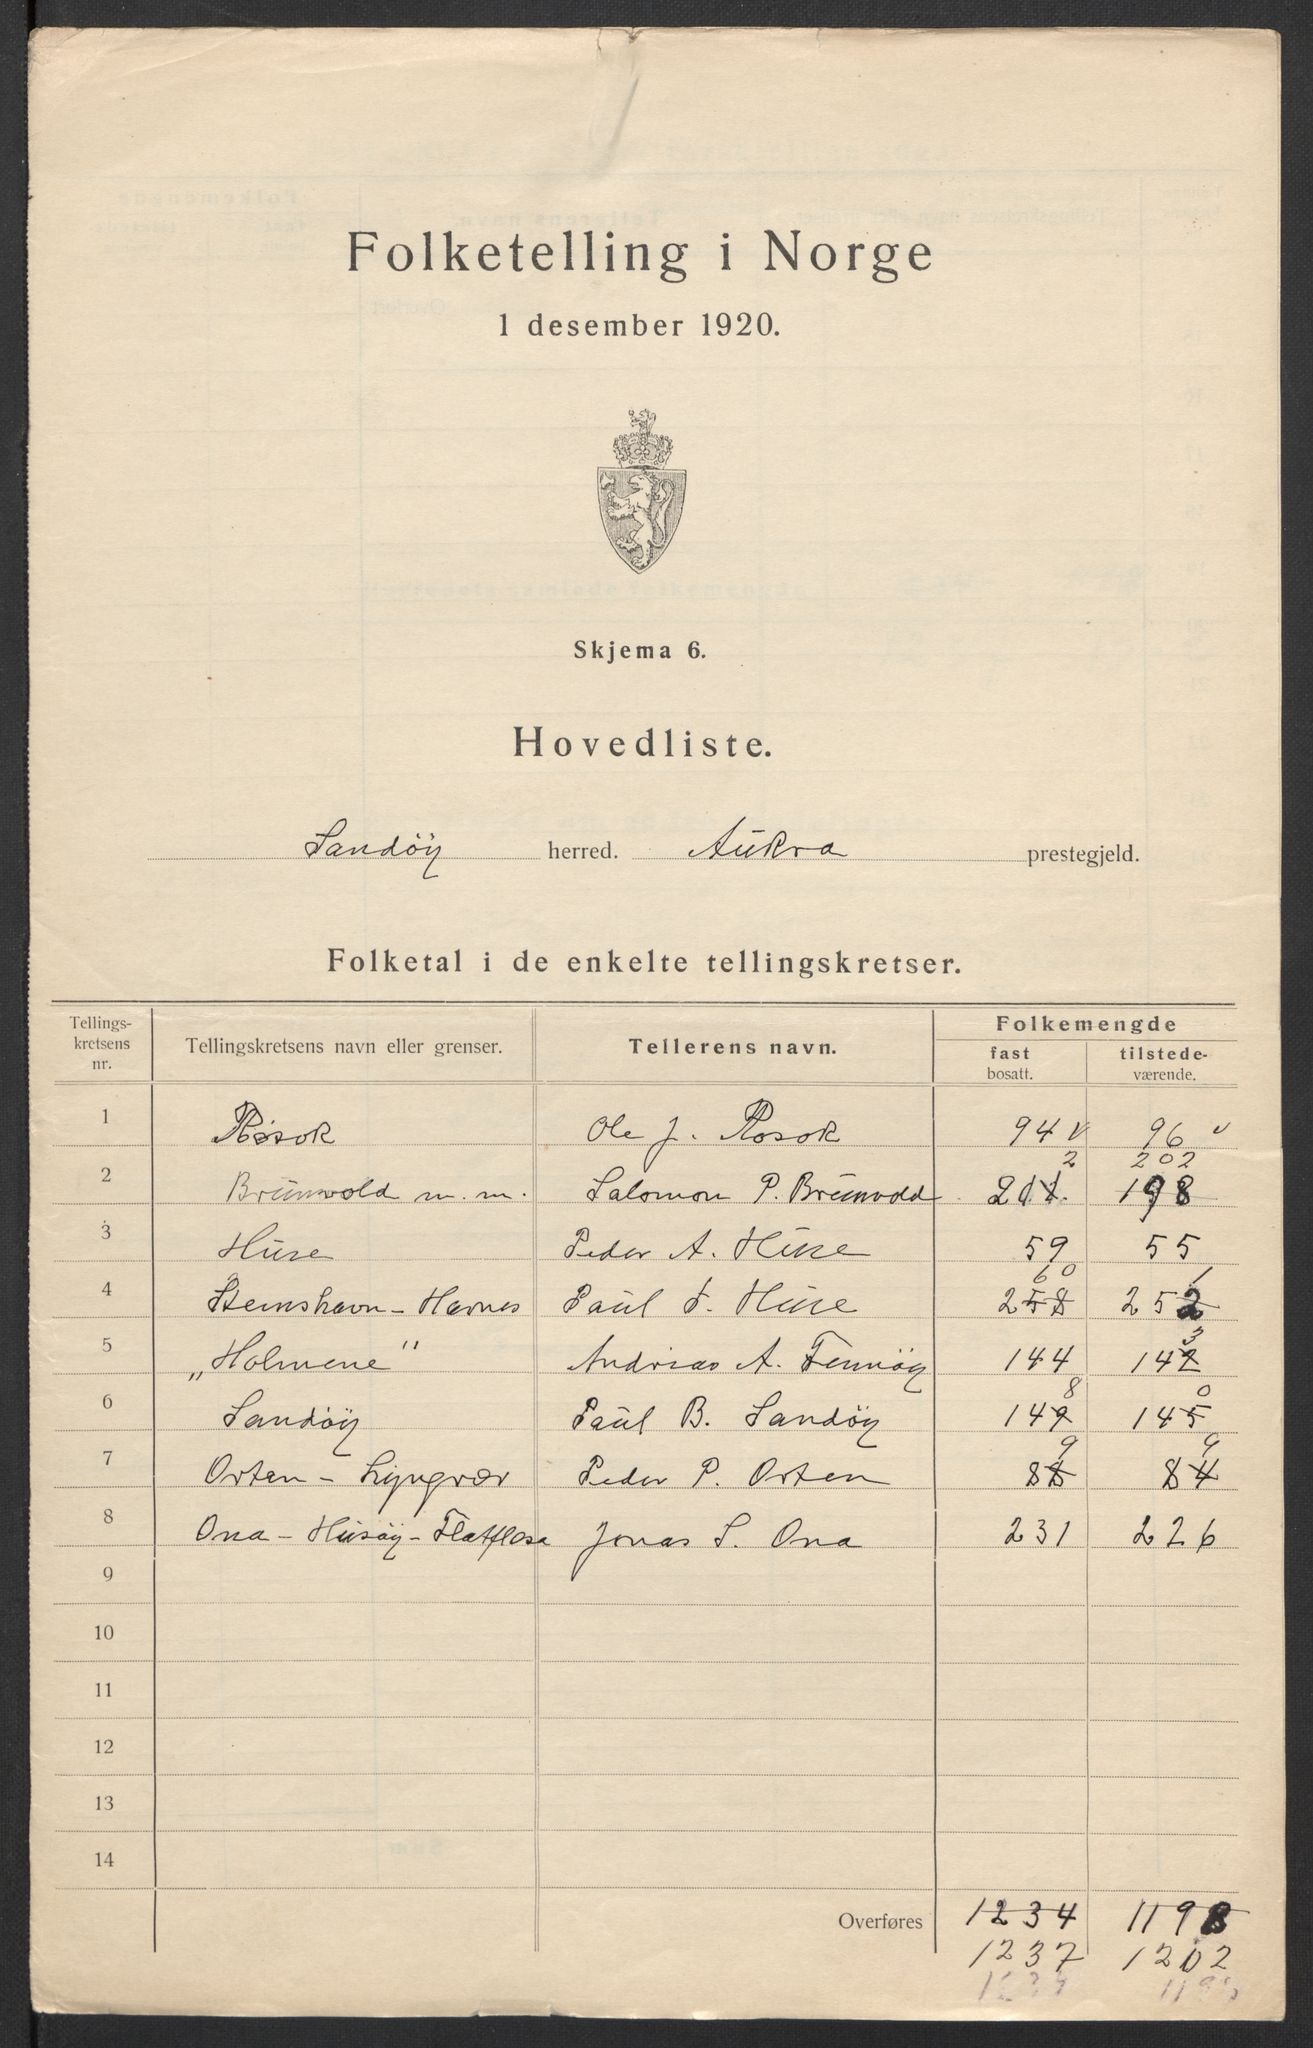 Folketelling i Norge
1 desember 1920.
Skjema 6.
Hovedliste.
Sandøy herred. Aukra prestegjeld.
Folketal i de enkelte tellingskretser.
Tellings-kretsens nr. Tellingskretsens navn eller grenser. Tellerens navn. Folkemengde
fast bosatt. tilstede-værende.
1 Røsok Ole J. Rosok 94 v 96 v
2 202
2 Brunvold m.m. Salomon P. Brunvold 211. 198
3 Huse Peder A. Huse 59 55
60 1
4 Stemshavn - Harnes Paul F. Huse 258 252
3
5 „Holmene" Andreas A. Fennøy 144 142
8 0
6 Sandøy Paul B. Sandøy 149 145
9 9
7 Orten - Lyngvær Peder P. Orten 88 84
8 Ona - Husøy - Flatflesa Jonas S. Ona 231 226
9
10
11
12
13
14
Overføres 1234 1198
1237 1202